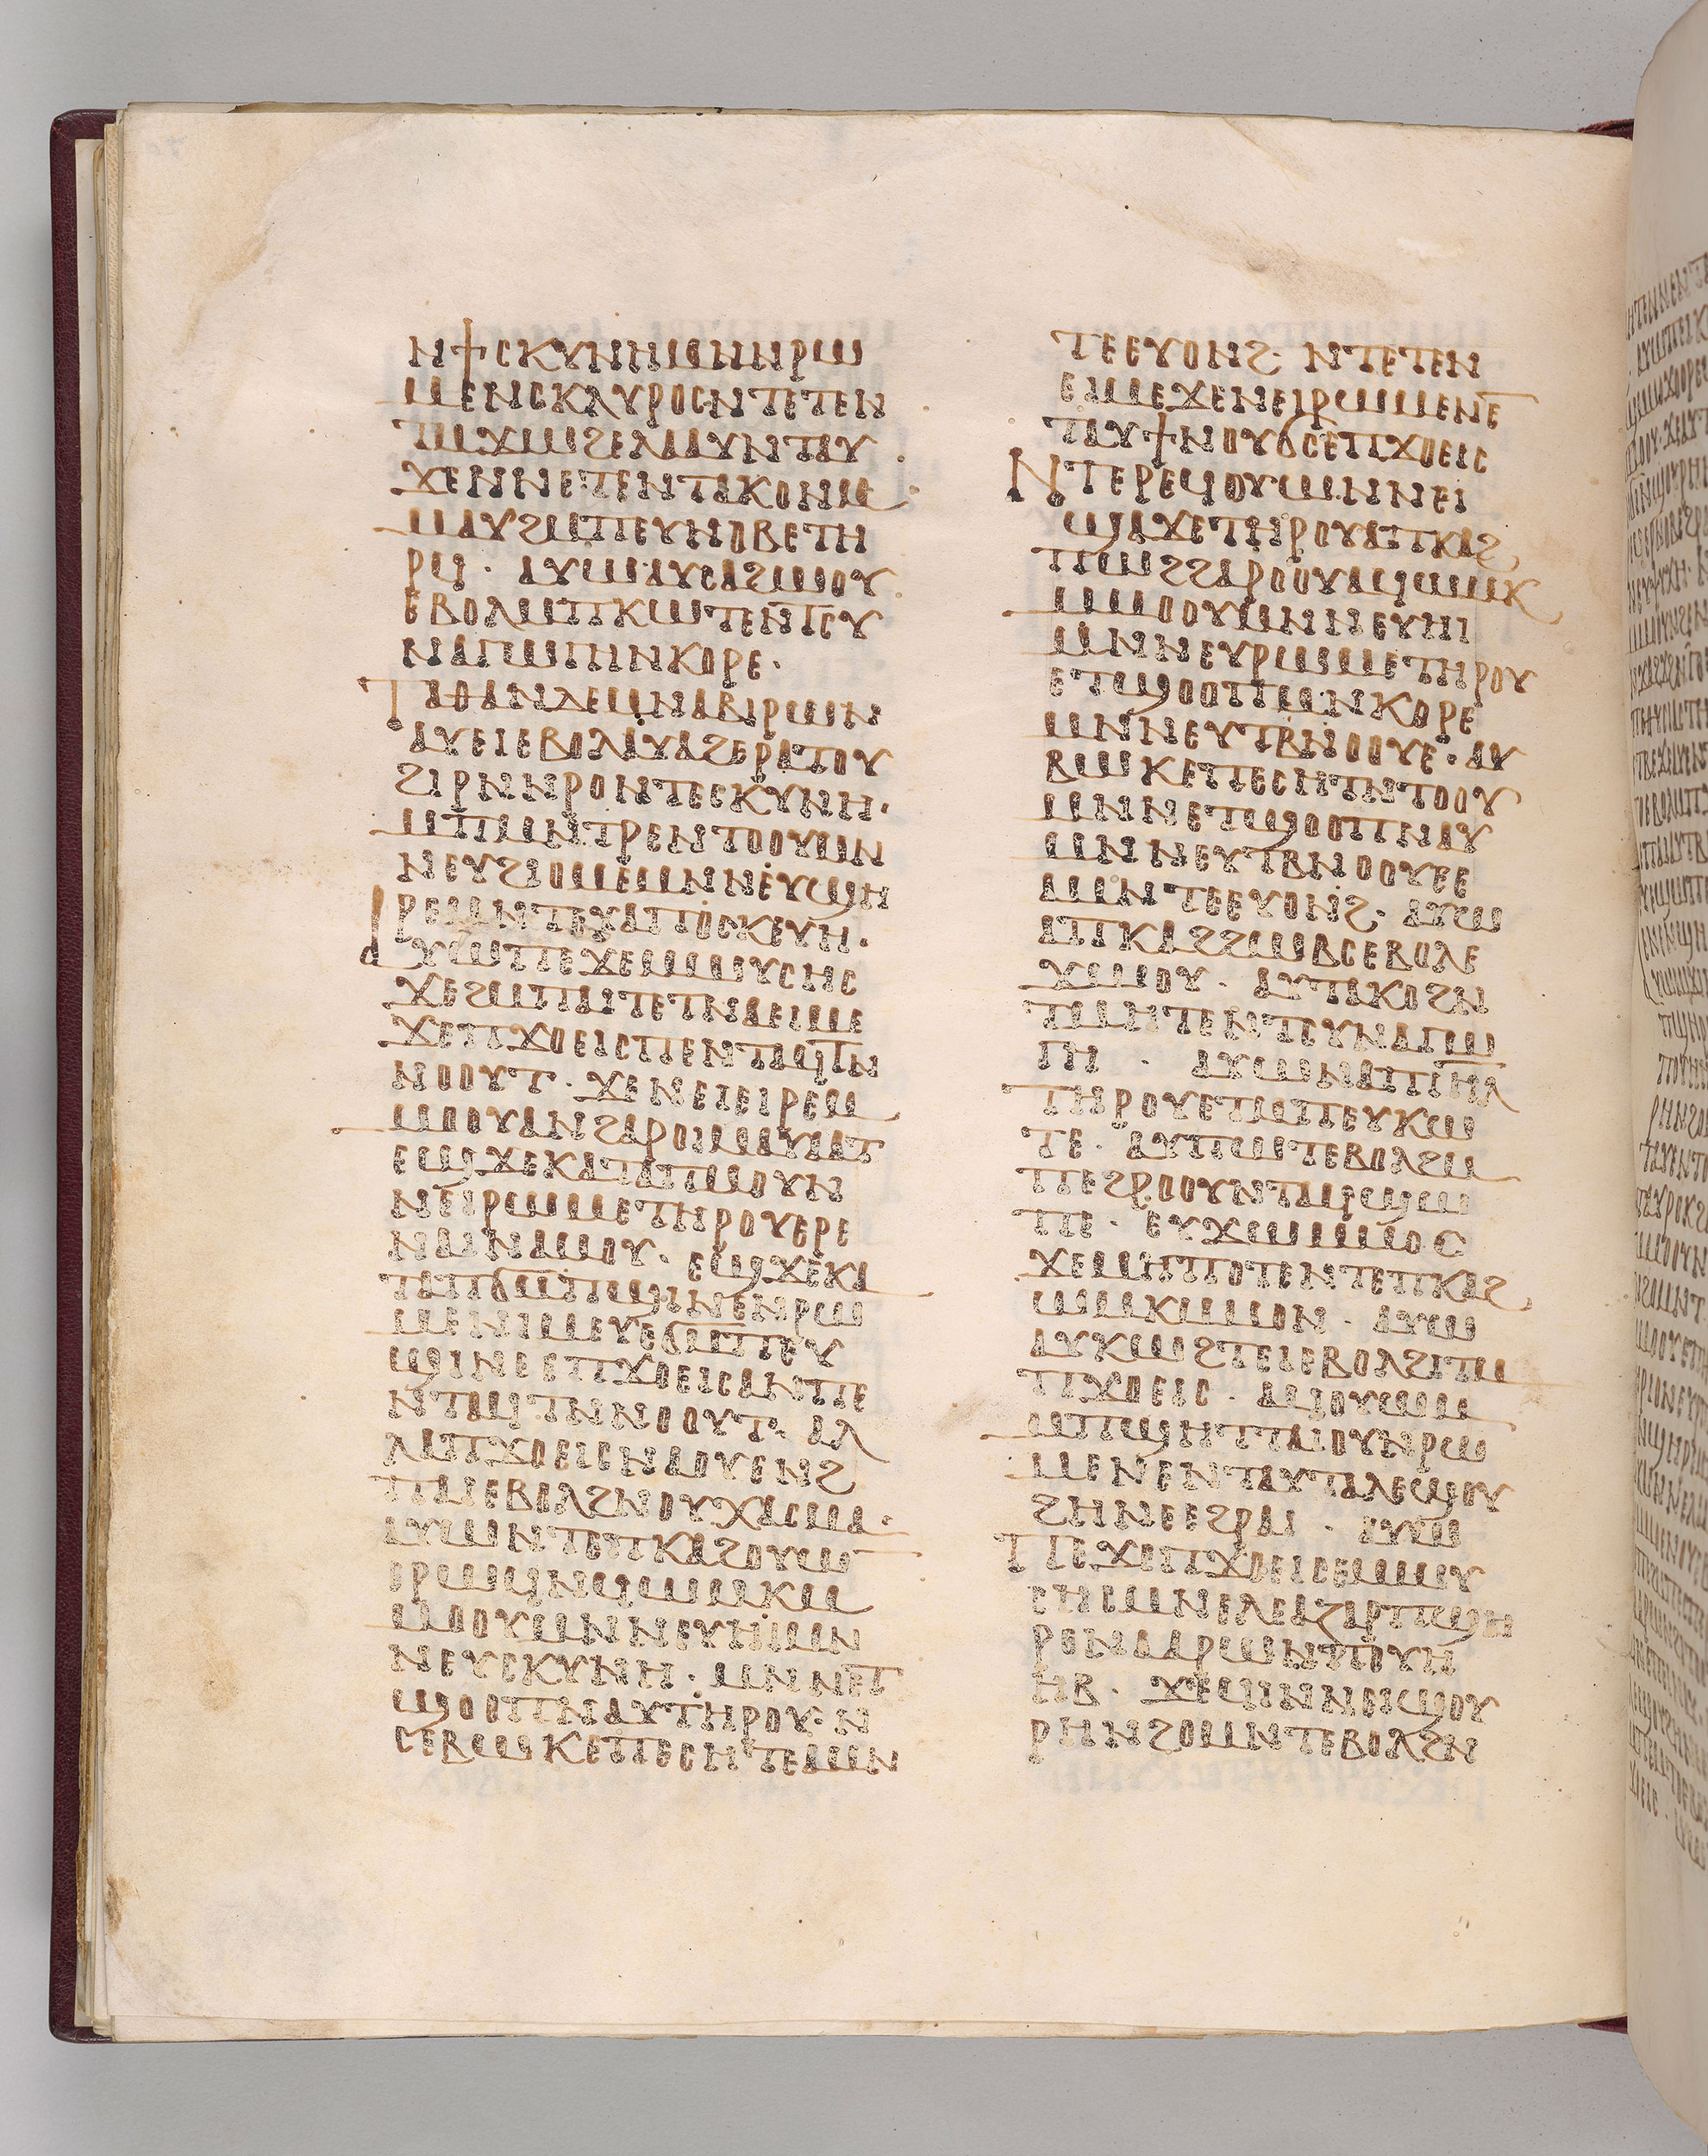 ⲛϯⲥⲕⲩⲛⲏⲙⲛⲛⲣⲱ
ⲙⲉⲛⲥⲕⲗⲩⲣⲟⲥⲛⲧⲉⲧⲉⲛ
ⲧⲙϫⲱϩⲉⲗⲁⲁⲩⲛⲧⲁⲩ
ϫⲉⲛⲛⲉⲧⲉⲛⲧⲁⲕⲟⲛⲙ
ⲙⲁⲩϩⲙⲡⲉⲩⲛⲟⲃⲉⲧⲏ
ⲣϥ · ⲁⲩⲱⲁⲩⲥⲁϩⲱⲟⲩ
ⲉⲃⲟⲗⲙⲡⲕⲱⲧⲉⲛⲧⲥⲩ
ⲛⲁⲅⲱⲅⲏⲛⲕⲟⲣⲉ ·
ⲧⲁⲑⲁⲛⲇⲉⲙⲛⲁⲃⲓⲣⲱⲛ
ⲁⲩⲉⲓⲉⲃⲟⲗⲁⲩⲁϩⲉⲣⲁⲧⲟⲩ
ϩⲓⲣⲛⲛⲣⲟⲛⲧⲉⲥⲕⲩⲛⲏ ·
ⲙⲡⲙⲛⲧⲣⲉⲛⲧⲟⲟⲩⲙⲛ
ⲛⲉⲩϩⲓⲟⲙⲉⲙⲛⲛⲉⲩϣⲏ
ⲣⲉⲙⲛⲧⲉⲩⲁⲡⲟⲥⲕⲉⲩⲏ ·
ⲁⲩⲱⲡⲉϫⲉⲙⲱⲩⲥⲏⲥ
ϫⲉϩⲙⲡⲁⲓⲧⲉⲧⲛⲁⲉⲓⲙⲉ
ϫⲉⲡϫⲟⲉⲓⲥⲡⲉⲛⲧⲁϥⲧⲛ
ⲛⲟⲟⲩⲧ · ϫⲉⲛⲉⲓⲉⲓⲣⲉⲙ
ⲙⲟⲟⲩⲁⲛϩⲁⲣⲟⲓⲙⲁⲩⲁⲁⲧ
ⲉϣϫⲉⲕⲁⲧⲁⲡⲙⲟⲩⲛ
ⲛⲉⲓⲣⲱⲙⲉⲧⲏⲣⲟⲩⲉⲣⲉ
ⲛⲁⲓⲛⲁⲙⲟⲩ · ⲉϣϫⲉⲕⲁ
ⲧⲁⲡϭⲙⲡϣⲓⲛⲉⲛⲣⲱ
ⲙⲉⲛⲓⲙⲉⲩⲉϭⲙⲡⲉⲩ
ϣⲓⲛⲉⲉⲡϫⲟⲉⲓⲥⲁⲛⲡⲉ
ⲛⲧⲁϥⲧⲛⲛⲟⲟⲩⲧ · ⲁⲗ
ⲗⲁⲡϫⲟⲉⲓⲥⲛⲁⲟⲩⲉⲛϩ
ⲡⲁⲓⲉⲃⲟⲗϩⲛⲟⲩⲭⲁⲥⲙⲁ ·
ⲁⲩⲱⲛⲧⲉⲡⲕⲁϩⲟⲩⲱ
ⲛⲣⲱϥⲛϥⲱⲙⲕⲙ
ⲙⲟⲟⲩⲙⲛⲛⲉⲩⲏⲓⲙⲛ
ⲛⲉⲩⲥⲕⲩⲛⲏ · ⲙⲛⲛⲉⲧ
ϣⲟⲟⲡⲛⲁⲩⲧⲏⲣⲟⲩ · ⲛ
ⲥⲉⲃⲱⲕⲉⲡⲉⲥⲏⲧⲉⲁⲙⲛ
ⲧⲉⲉⲩⲟⲛϩ · ⲛⲧⲉⲧⲉⲛ
ⲉⲓⲙⲉϫⲉⲛⲉⲓⲣⲱⲙⲉⲛⲉ
ⲧⲁⲩϯⲛⲟⲩϭⲥⲉⲡϫⲟⲉⲓⲥ
ⲛⲧⲉⲣⲉϥⲟⲩⲱⲛⲛⲉⲓ
ϣⲁϫⲉⲧⲏⲣⲟⲩⲁⲡⲕⲁϩ
ⲡⲱϩϩⲁⲣⲟⲟⲩⲁϥⲱⲙⲕ
ⲙⲙⲟⲟⲩⲙⲛⲛⲉⲩⲏⲓ
ⲙⲛⲛⲉⲩⲣⲱⲙⲉⲧⲏⲣⲟⲩ
ⲉⲧϣⲟⲟⲡⲙⲛⲕⲟⲣⲉ
ⲙⲛⲛⲉⲩⲧⲃⲛⲟⲟⲩⲉ · ⲁⲩ
ⲃⲱⲕⲉⲡⲉⲥⲏⲧⲛⲧⲟⲟⲩ
ⲙⲛⲛⲉⲧϣⲟⲟⲡⲛⲁⲩ
ⲙⲛⲛⲉⲩⲧⲃⲛⲟⲟⲩⲉⲉ
ⲁⲙⲛⲧⲉⲉⲩⲟⲛϩ · ⲁⲩⲱ
ⲁⲡⲕⲁϩϩⲱⲃⲥⲉⲃⲟⲗⲉ
ϫⲱⲟⲩ · ⲁⲩⲧⲁⲕⲟϩⲛ
ⲧⲙⲏⲧⲉⲛⲧⲥⲩⲛⲁⲅⲱ
ⲅⲏ · ⲁⲩⲱⲛⲁⲡⲓⲏⲗ
ⲧⲏⲣⲟⲩⲉⲧⲙⲡⲉⲩⲕⲱ
ⲧⲉ · ⲁⲩⲡⲱⲧⲉⲃⲟⲗϩⲙ
ⲡⲉϩⲣⲟⲟⲩⲛⲧⲁϥϣⲱ
ⲡⲉ · ⲉⲩϫⲱⲙⲙⲟⲥ
ϫⲉⲙⲏⲡⲟⲧⲉⲛⲧⲉⲡⲕⲁϩ
ⲱⲙⲕⲙⲙⲟⲛ · ⲁⲩⲱ
ⲁⲩⲕⲱϩⲧⲉⲓⲉⲃⲟⲗϩⲓⲧⲙ
ⲡϫⲟⲉⲓⲥ · ⲁϥⲟⲩⲱⲙ
ⲙⲡϣⲏⲧⲧⲁⲓⲟⲩⲛⲣⲱ
ⲙⲉⲛⲉⲛⲧⲁⲩⲧⲁⲗⲉϣⲟⲩ
ϩⲏⲛⲉⲉϩⲣⲁⲓ · ⲁⲩⲱ
ⲡⲉϫⲉⲡϫⲟⲉⲓⲥⲉⲙⲱⲩ
ⲥⲏⲥⲙⲛⲉⲗⲉⲁⲍⲁⲣⲡϣⲏ
ⲣⲉⲛⲁⲁⲣⲱⲛⲡⲟⲩⲏ
ⲏⲃ · ϫⲉϥⲓⲛⲛⲉⲓϣⲟⲩ
ⲣⲏⲛϩⲟⲙⲛⲧⲉⲃⲟⲗϩⲛ